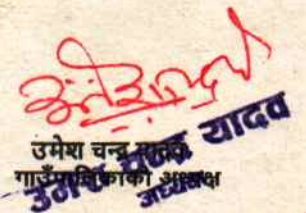 उमेश चन्द्र यादव
गाउँपालिकाको अध्यक्ष
उमेश चन्द्र यादव
अध्यक्ष